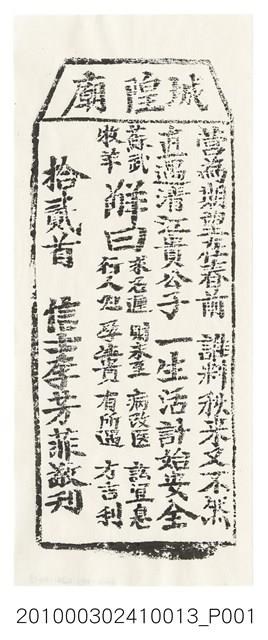 城隍廟
營為期望在春前 誰料秋來又不然
直遇清江貴公子 一生活計始安全
蘇武
牧羊
解曰
求名遲 財未至 病改医 訟宜息
行人起 孕 貴 有所遇 方吉利
拾貳首 信士李芳菲敬刊
201000302410013_P001